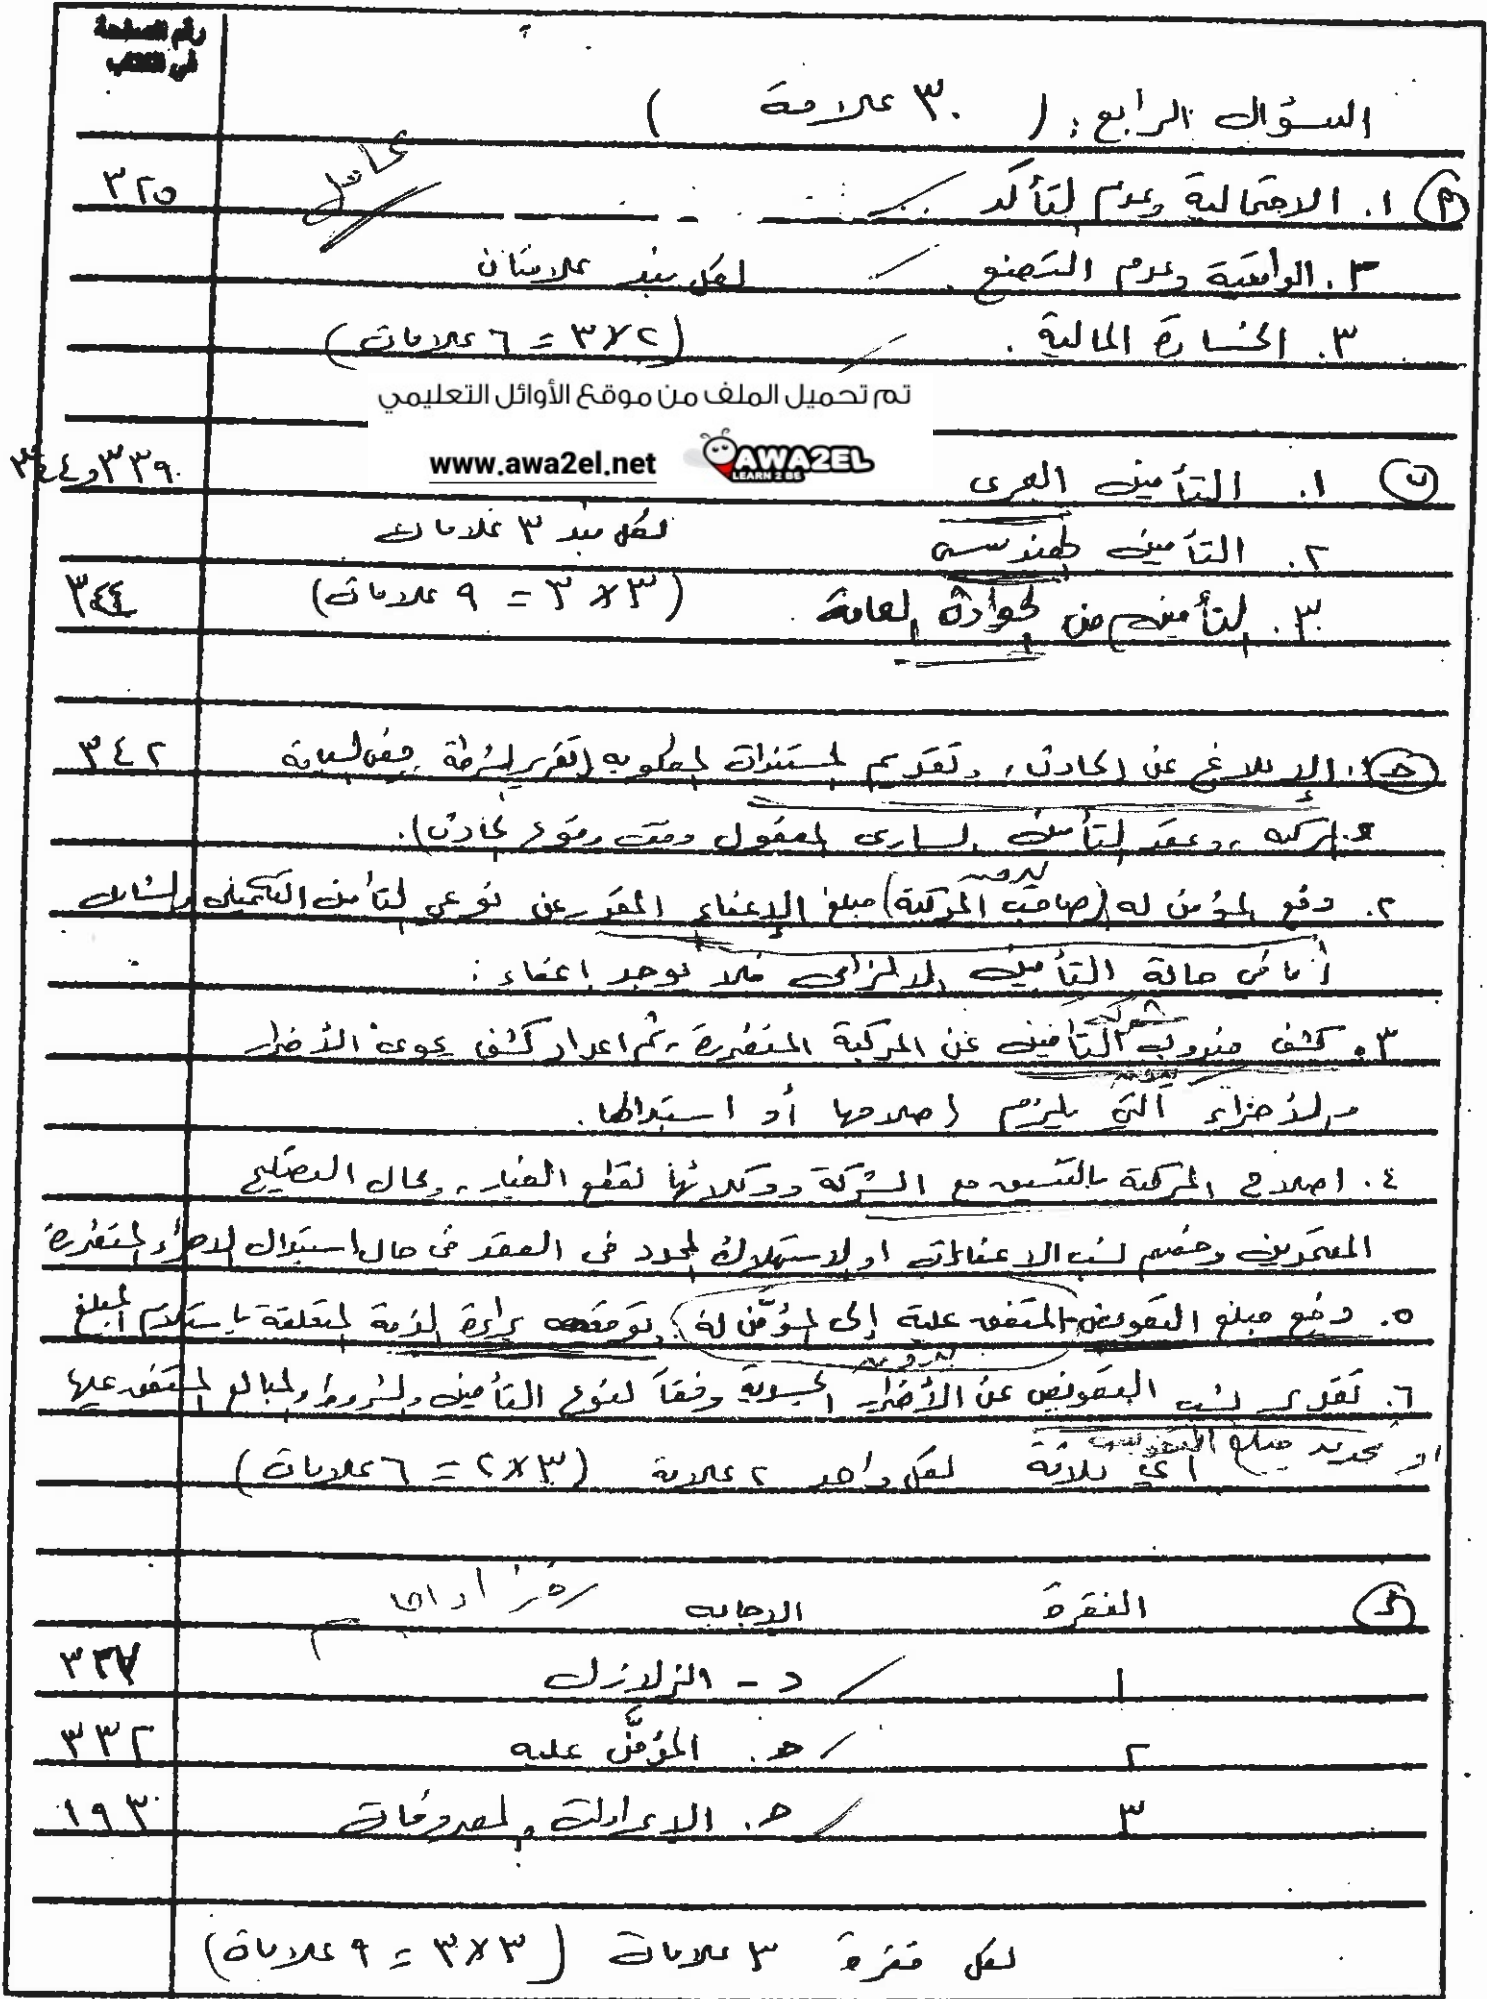 رقم الصفحة
في الكتاب
السؤال الرابع : ( ٣٠ علامة )
٣٢٥
أ ١. الاحتمالية وعدم التأكد
٢. الواقعية وعدم التصنع . لكل بند علامتان
٣. الخسارة المالية . (٢×٣ = ٦ علامات)
تم تحميل الملف من موقع الأوائل التعليمي
www.awa2el.net AWA2EL
LEARN 2 BE
٣٣٩ و ٣٤٤
ب ١. التأمين البحري
٢. التأمين الهندسي لكل بند ٣ علامات
٣٤٤
٣. التأمين من الحوادث العامة (٣×٣ = ٩ علامات)
٣٤٢
ج ١. الإبلاغ عن الحادث، وتقديم المستندات المطلوبة (تقرير الشرطة
المركبة، وعقد التأمين الساري المفعول وقت وقوع الحادث).
٢. دفع المؤمن له (صاحب المركبة) مبلغ الإعفاء المقدر عن نوعي التأمين التكميلي والشامل
أما في حالة التأمين الإلزامي فلا يوجد إعفاء .
٣. كشف مندوب شركة التأمين عن المركبة المتضررة ، ثم اعداد كشف يحوي الأضرار
والأجزاء التي يلزم إصلاحها أو استبدالها.
٤. اصلاح المركبة بالتنسيق مع الشركة ووكلائها لقطع الغيار ، ومحال التصليح
المعتمدين وخصم نسب الاعفاءات او الاستهلاك المحدد في العقد في حال استبدال الاجزاء المتضررة
٥. دفع مبلغ التعويض المتفق عليه إلى المؤمَّن له، وتوقيعه براءة الذمة المتعلقة باستلام المبلغ
٦. تقدير نسب التعويض عن الأضرار الجسدية وفقاً لنوع التأمين والشروط والمبالغ المتفق عليها
او تحديد مبلغ التعويض
أي ثلاثة لكل واحد ٢ علامة (٣×٢ = ٦ علامات)
د الفقرة الاجابة رمز أو اجابة
١ د - الزلازل ٣٣٧
٢ ج. المؤمَّن عليه ٣٣٢
٣ ج. الايرادات والمصروفات ١٩٣
لكل فقرة ٣ علامات (٣×٣ = ٩ علامات)